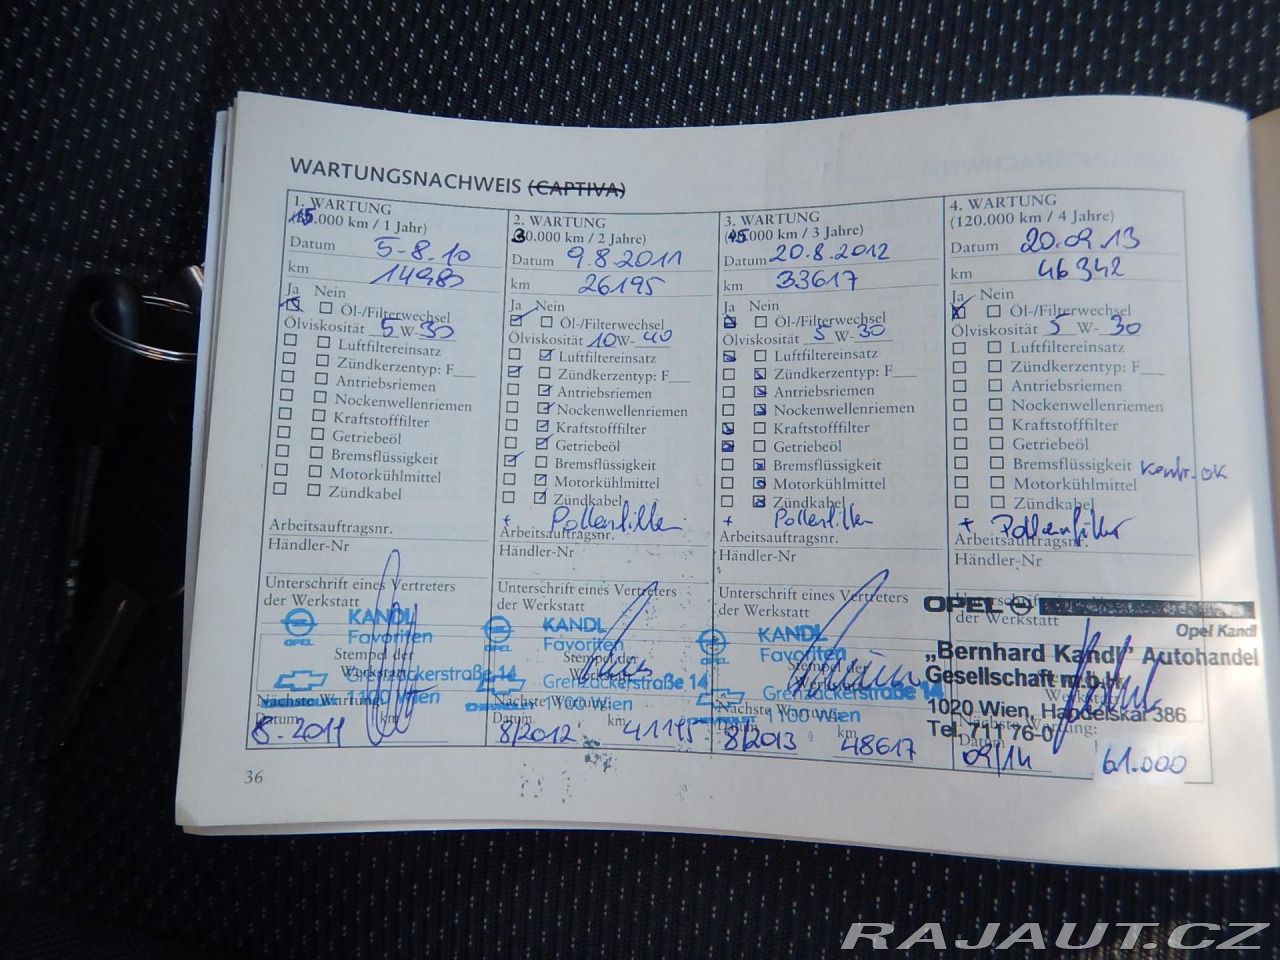 WARTUNGSNACHWEIS (CAPTIVA)
1. WARTUNG
15.000 km / 1 Jahr)
Datum 5-8.10
km 14983
Ja Nein
Öl-/Filterwechsel
Ölviskosität 5 W-30
Luftfiltereinsatz
Zündkerzentyp: F
Antriebsriemen
Nockenwellenriemen
Kraftstofffilter
Getriebeöl
Bremsflüssigkeit
Motorkühlmittel
Zündkabel
Arbeitsauftragsnr.
Händler-Nr
Unterschrift eines Vertreters
der Werkstatt
KANDL
Favoriten
OPEL
Stempel der
Werkstatt
Grenzackerstraße 14
1100 Wien
Nächste Wartung
Datum km
8.2011
2. WARTUNG
30.000 km / 2 Jahre)
Datum 9.8.2011
km 26195
Ja Nein
Öl-/Filterwechsel
Ölviskosität 10W-40
Luftfiltereinsatz
Zündkerzentyp: F
Antriebsriemen
Nockenwellenriemen
Kraftstofffilter
Getriebeöl
Bremsflüssigkeit
Motorkühlmittel
Zündkabel
+ Pollenfilter
Arbeitsauftragsnr.
Händler-Nr
Unterschrift eines Vertreters
der Werkstatt
KANDL
Favoriten
OPEL
Stempel der
Grenzackerstraße 14
1100 Wien
Nächste Wartung:
Datum km
8/2012 41195
3. WARTUNG
(45.000 km / 3 Jahre)
Datum 20.8.2012
km 33617
Ja Nein
Öl-/Filterwechsel
Ölviskosität 5 W-30
Luftfiltereinsatz
Zündkerzentyp: F
Antriebsriemen
Nockenwellenriemen
Kraftstofffilter
Getriebeöl
Bremsflüssigkeit
Motorkühlmittel
Zündkabel
+ Pollenfilter
Arbeitsauftragsnr.
Händler-Nr
Unterschrift eines Vertreters
der Werkstatt
KANDL
Favoriten
Stempel der
Grenzackerstraße 14
1100 Wien
Nächste Wartung:
Datum km
8/2013 48617
4. WARTUNG
(120.000 km / 4 Jahre)
Datum 20.09.13
km 46342
Ja Nein
Öl-/Filterwechsel
Ölviskosität 5 W- 30
Luftfiltereinsatz
Zündkerzentyp: F
Antriebsriemen
Nockenwellenriemen
Kraftstofffilter
Getriebeöl
Bremsflüssigkeit Kontr. ok
Motorkühlmittel
Zündkabel
+ Pollenfilter
Arbeitsauftragsnr.
Händler-Nr
Unterschrift eines Vertreters
OPEL
der Werkstatt
Opel Kandl
„Bernhard Kandl" Autohandel
Gesellschaft m.b.H.
1020 Wien, Handelskai 386
Tel. 711 76-0
Nächste Wartung:
09/14 61.000
36
RAJAUT.CZ